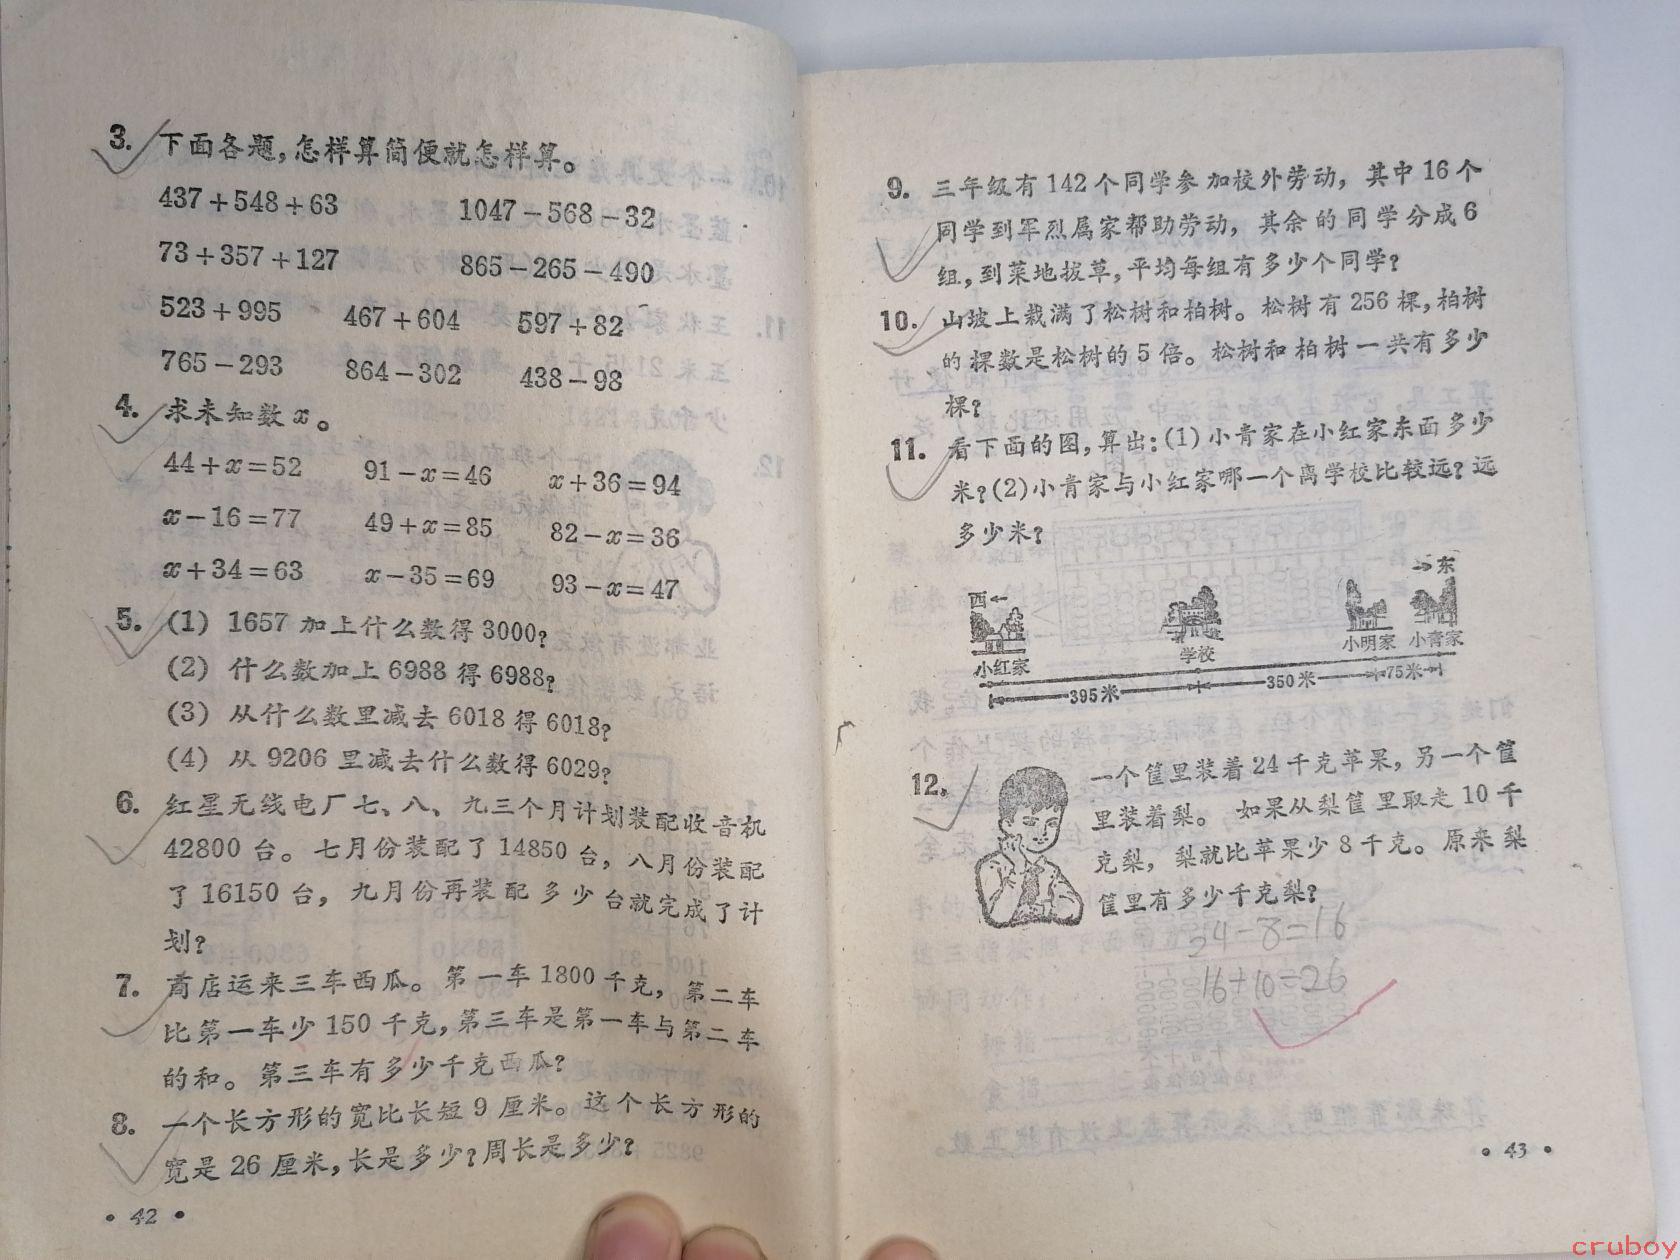 3. 下面各题,怎样算简便就怎样算。
437+548+63 1047-568-32
73+357+127 865-265-490
523+995 467+604 597+82
765-293 864-302 438-98
4. 求未知数x。
44+x=52 91-x=46 x+36=94
x-16=77 49+x=85 82-x=36
x+34=63 x-35=69 93-x=47
5. (1) 1657 加上什么数得3000?
(2) 什么数加上 6988 得 6988?
(3) 从什么数里减去 6018 得 6018?
(4) 从 9206 里减去什么数得 6029?
6. 红星无线电厂七、八、九三个月计划装配收音机
42800 台。七月份装配了 14850 台, 八月份装配
了 16150 台, 九月份再装配多少台就完成了计
划?
7. 商店运来三车西瓜。第一车 1800 千克, 第二车
比第一车少 150 千克,第三车是第一车与第二车
的和。第三车有多少千克西瓜?
8. 一个长方形的宽比长短 9 厘米。这个长方形的
宽是 26 厘米,长是多少?周长是多少?
• 42 •
9. 三年级有 142 个同学参加校外劳动, 其中 16 个
同学到军烈属家帮助劳动, 其余的同学分成 6
组,到菜地拔草,平均每组有多少个同学?
10. 山坡上栽满了松树和柏树。松树有 256 棵,柏树
的棵数是松树的 5 倍。松树和柏树一共有多少
棵?
11. 看下面的图,算出:(1)小青家在小红家东面多少
米?(2)小青家与小红家哪一个离学校比较远?远
多少米?
西← →东
小红家 学校 小明家 小青家
395米 350米 75米
12. 一个筐里装着 24 千克苹果, 另一个筐
里装着梨。如果从梨筐里取走 10 千
克梨, 梨就比苹果少 8 千克。原来梨
筐里有多少千克梨?
24-8=16
16+10=26
• 43 •
cruboy